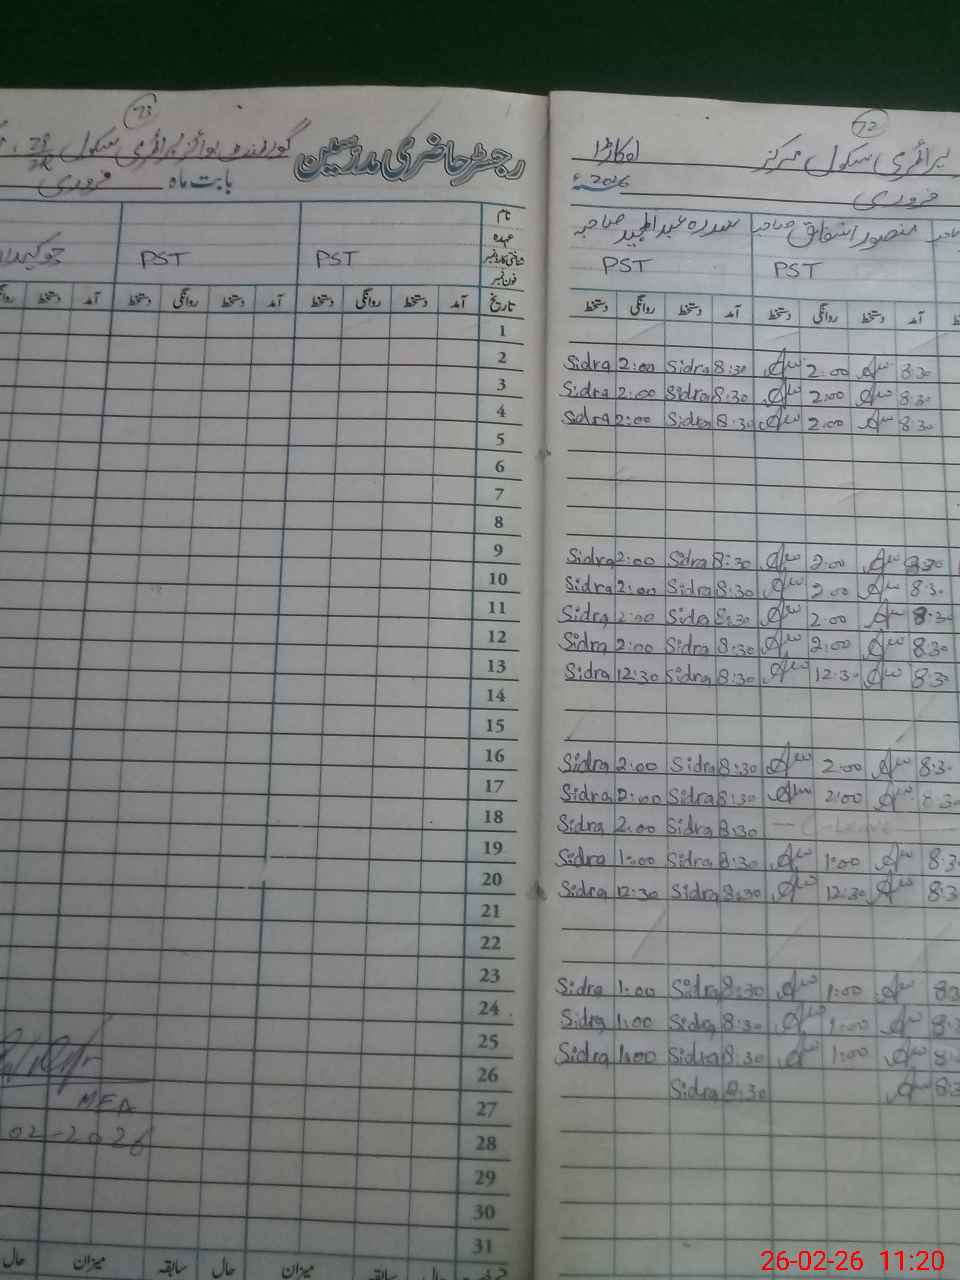 73
رجسٹر حاضری مدرسین گورنمنٹ بوائز پرائمری سکول
بابت ماہ فروری
نام
عہدہ
شناختی کارڈ نمبر
فون نمبر
PST PST
تاریخ آمد دستخط روانگی دستخط آمد دستخط روانگی دستخط آمد دستخط
1
2
3
4
5
6
7
8
9
10
11
12
13
14
15
16
17
18
19
20
21
22
23
24
25
26
27
28
29
30
31
MEA
02-2026
میزان حال سابقہ میزان حال سابقہ
72
پرائمری سکول مرکز اوکاڑا
فروری 2026ء
منصور اشفاق صاحب سدرہ عبدالمجید صاحبہ
PST PST
آمد دستخط روانگی دستخط آمد دستخط روانگی دستخط
Sidra 2:00 Sidra 8:30 2:00 8:30
Sidra 2:00 Sidra 8:30 2:00 8:30
Sidra 2:00 Sidra 8:30 2:00 8:30
Sidra 2:00 Sidra 8:30 2:00 8:30
Sidra 2:00 Sidra 8:30 2:00 8:30
Sidra 2:00 Sidra 8:30 2:00 8:30
Sidra 2:00 Sidra 8:30 2:00 8:30
Sidra 12:30 Sidra 8:30 12:30 8:30
Sidra 2:00 Sidra 8:30 2:00 8:30
Sidra 2:00 Sidra 8:30 2:00 8:30
Sidra 2:00 Sidra 8:30 — C-Leave —
Sidra 1:00 Sidra 8:30 1:00 8:3
Sidra 12:30 Sidra 8:30 12:30 8:3
Sidra 1:00 Sidra 8:30 1:00
Sidra 1:00 Sidra 8:30 1:00
Sidra 1:00 Sidra 8:30 1:00
Sidra 8:30 8:3
26-02-26 11:20